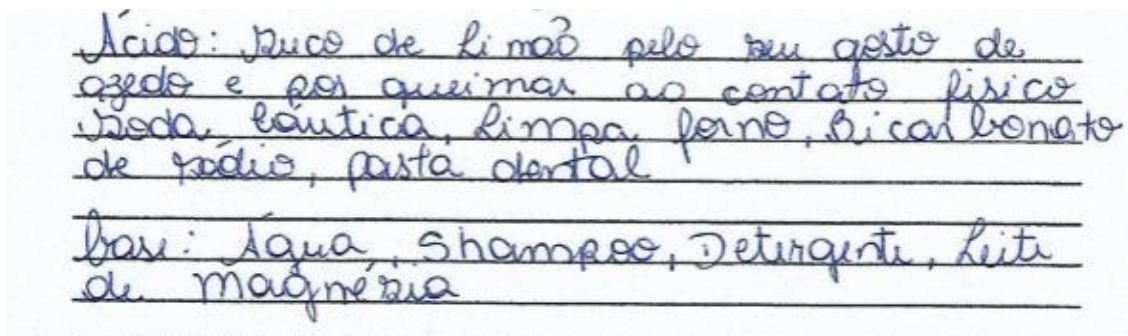 Ácido: Suco de Limão pelo seu gosto de
azedo e por queimar ao contato físico
Soda Cáutica, Limpa forno, Bicarbonato
de sódio, pasta dental
base: Água, Shampoo, Detergente, Leite
de Magnésia